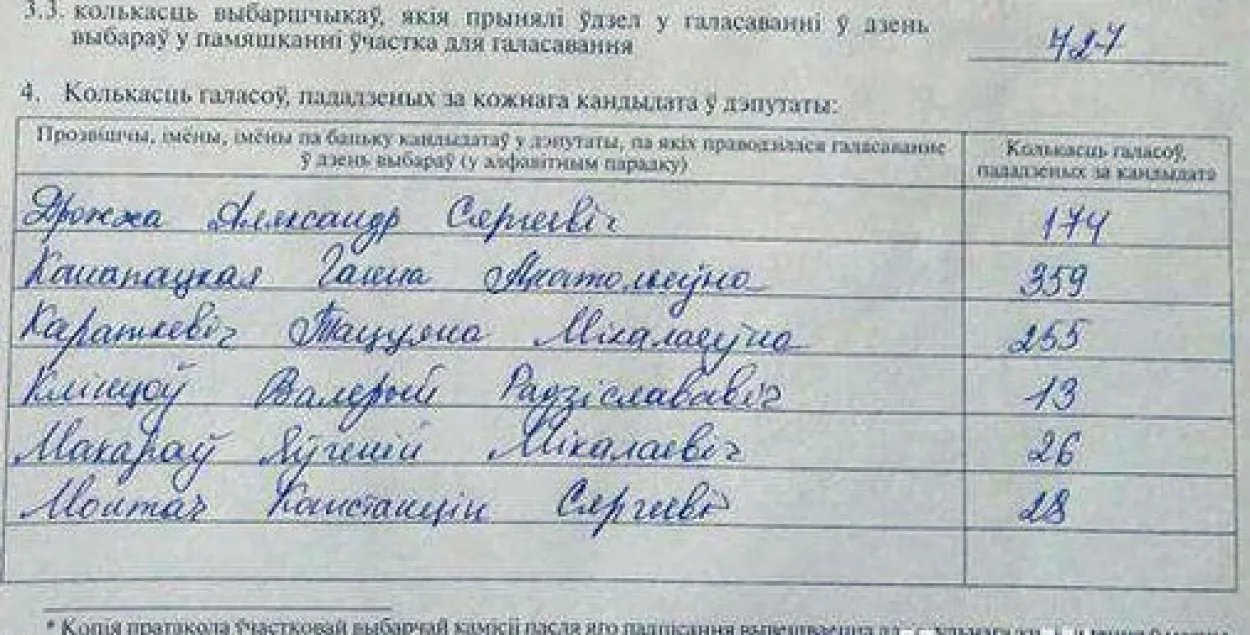 3.3. колькасць выбаршчыкаў, якія прынялі ўдзел у галасаванні ў дзень
выбараў у памяшканні ўчастка для галасавання
727
4. Колькасць галасоў, пададзеных за кожнага кандыдата ў дэпутаты:
Прозвішчы, імёны, імёны па бацьку кандыдатаў у дэпутаты, па якіх праводзілася галасаванне
ў дзень выбараў (у алфавітным парадку)
Колькасць галасоў,
пададзеных за кандыдата
Дрожжа Аляксандр Сяргеевіч 174
Канапацкая Ганна Анатольеўна 359
Караткевіч Таццяна Мікалаеўна 255
Клінцоў Валерый Радзіслававіч 13
Макараў Яўгеній Мікалаевіч 26
Монтач Канстанцін Сяргеевіч 28
* Копія пратакола ўчастковай выбарчай камісіі пасля яго падпісання вывешваецца для